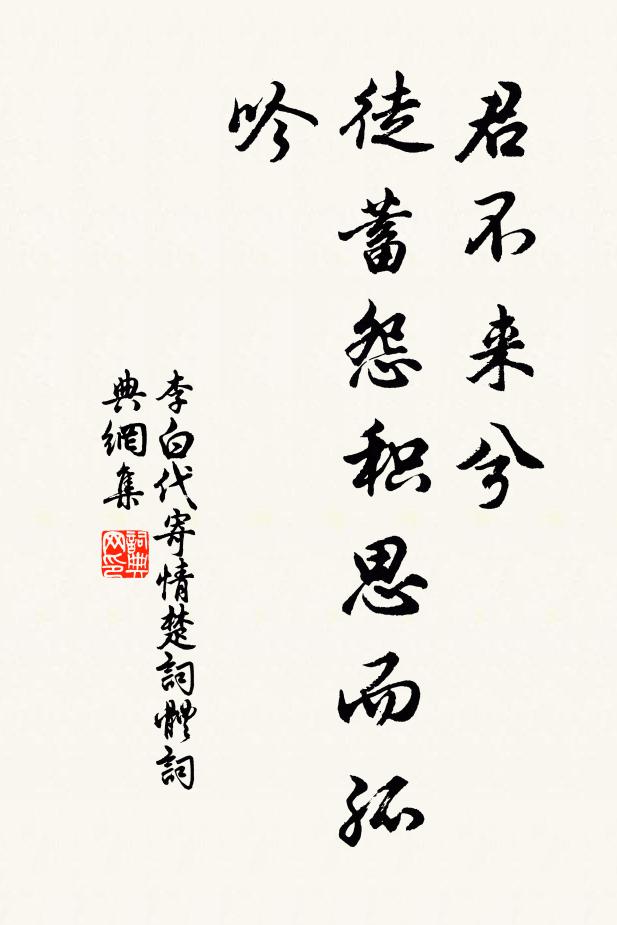 君不来兮
徒蓄怨积思而孤
吟
李白代寄情楚詞體詞
典網集
詞典
网印